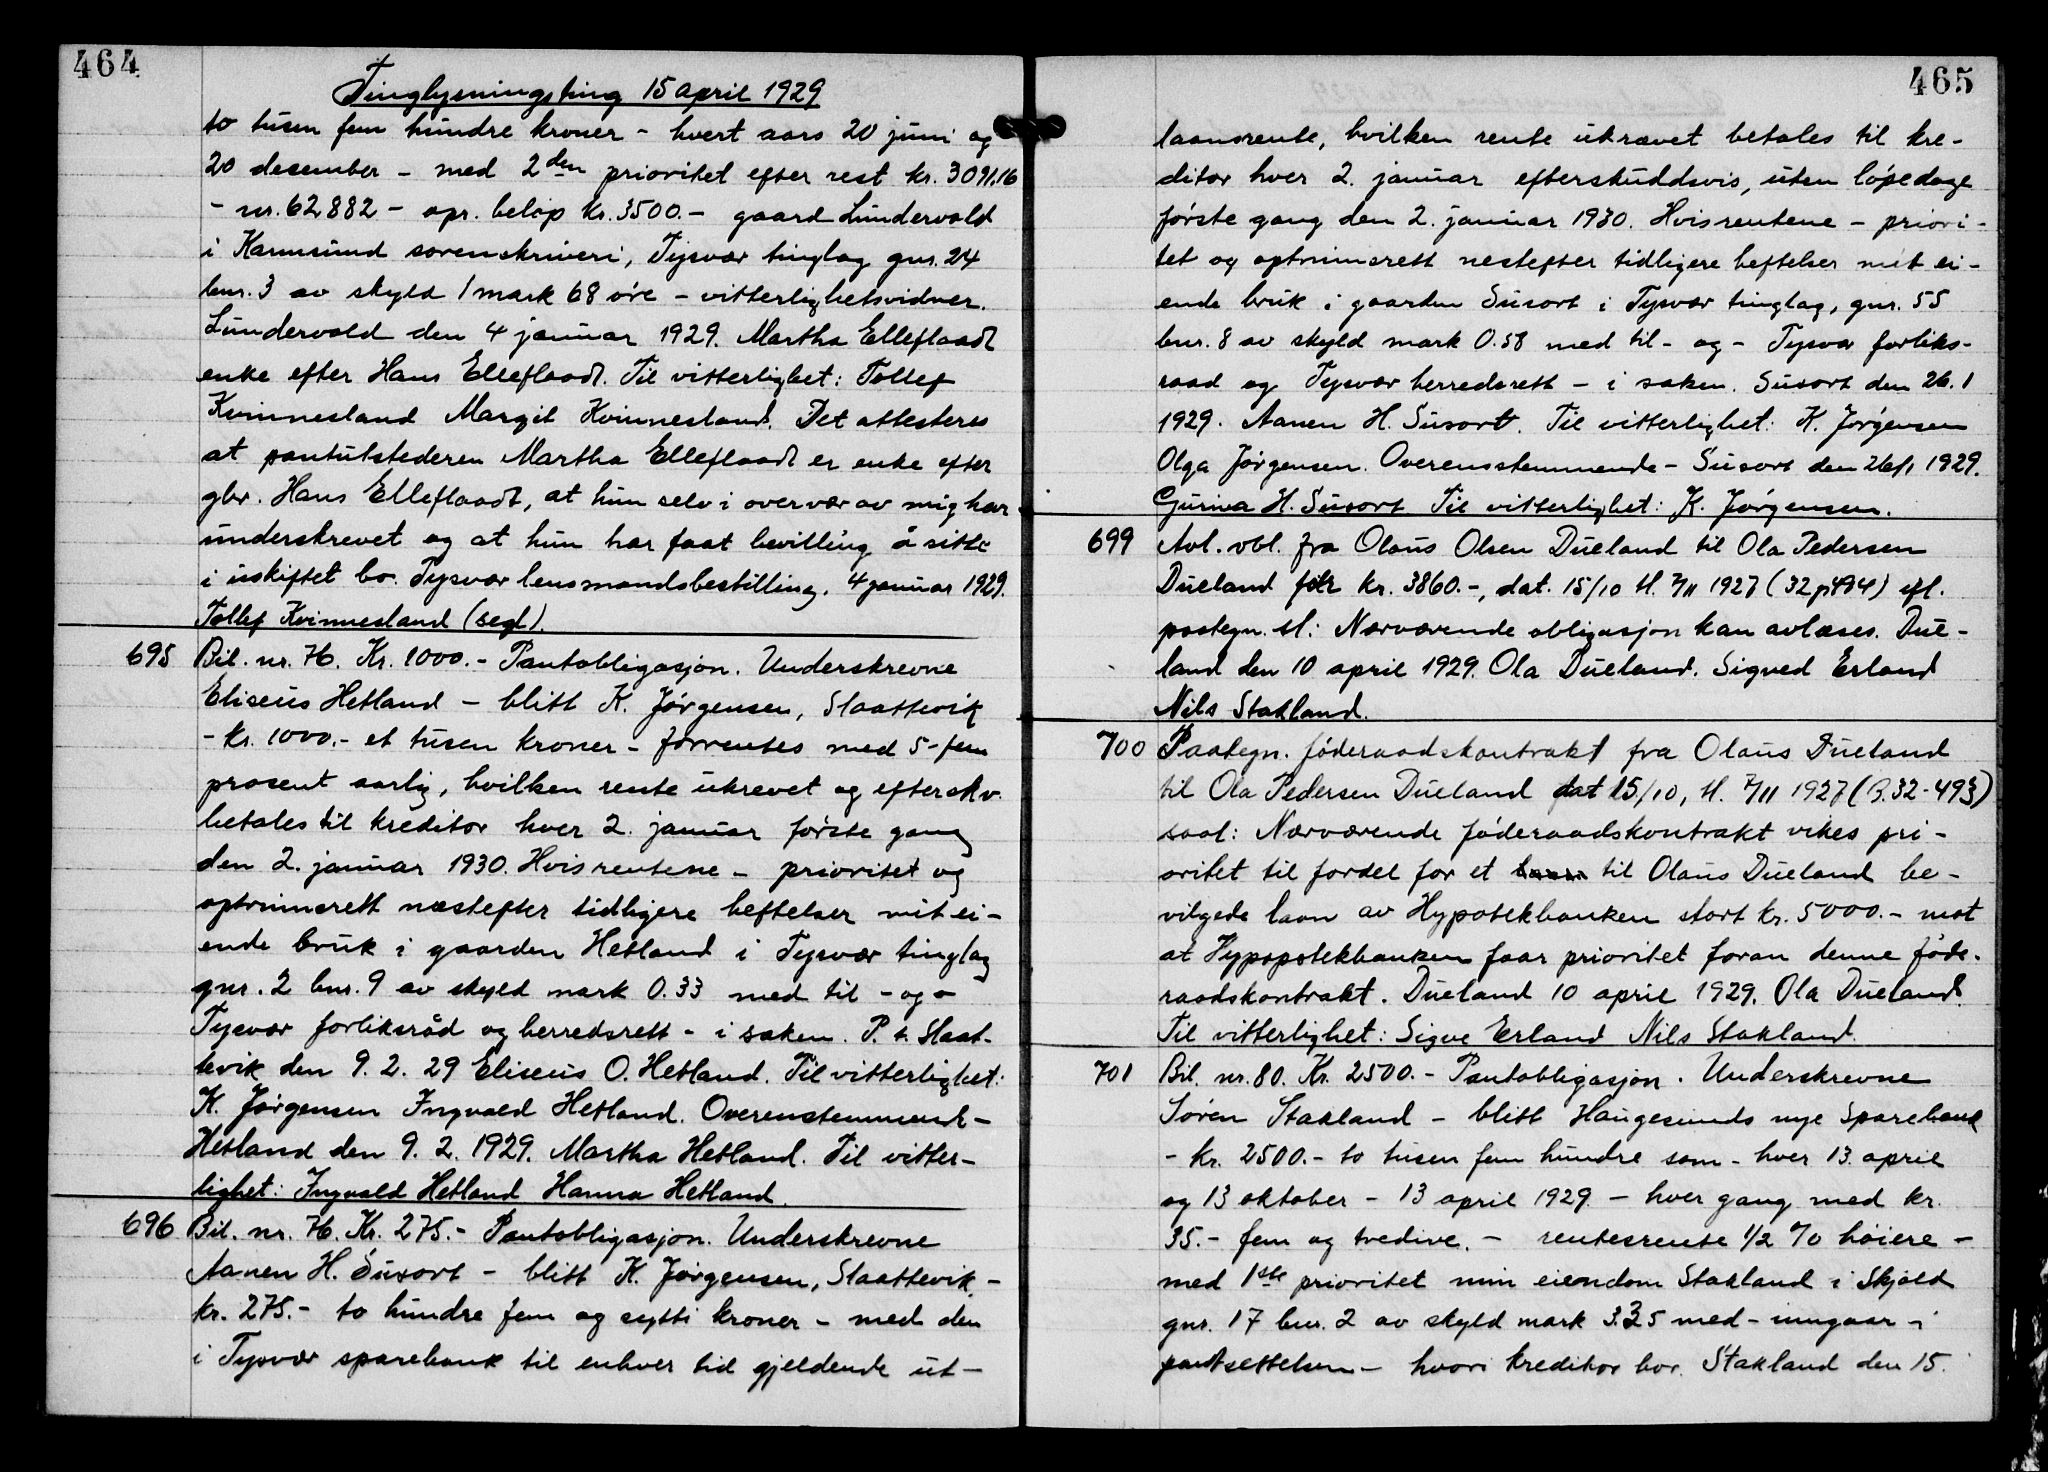 464
Tinglysningsting 15 april 1929
to tusen fem hundre kroner - hvert aars 20 juni og
20 desember - med 2den prioritet efter rest kr. 3091.16
- nr. 62882 - opr. beløp kr. 3500.- gaard Lundervold
i Karmsund sorenskriveri, Tysvær tinglag gnr. 24
bnr. 3 av skyld 1 mark 68 øre - vitterlighetsvidner.
Lundervold den 4 januar 1929. Martha Elleflaadt
enke efter Hans Elleflaadt. Til vitterlighet: Tollef
Kvinnesland Margit Kvinnesland. Det attesteres
at pantutstederen Martha Elleflaadt er enke efter
gbr. Hans Elleflaadt, at hun selv i overvær av mig har
underskrevet og at hun har faat bevilling å sitte
i uskiftet bo. Tysvær lensmandsbestilling. 4 januar 1929.
Tollef Kvinnesland (segl).
695 Bil. nr. 76. Kr. 1000.- Pantobligasjon. Underskrevne
Eliseus Hetland - blitt K. Jørgensen, Slaattevik
- kr. 1000.- et tusen kroner - forrentes med 5 - fem
prosent aarlig, hvilken rente ukrevet og efterskv.
betales til kreditor hver 2. januar første gang
den 2. januar 1930. Hvis rentene - prioritet og
optrinnsrett næstefter tidligere heftelser mit ei-
ende bruk i gaarden Hetland i Tysvær tinglag
gnr. 2 bnr. 9 av skyld mark 0.33 med til - og -
Tysvær forliksråd og herredsrett - i saken. P. t. Slaat-
tevik den 9. 2. 29 Eliseus O. Hetland. Til vitterlighet:
K. Jørgensen Ingvald Hetland. Overenstemmend-
Hetland den 9. 2. 1929. Martha Hetland. Til vitter-
lighet: Ingvald Hetland Hanna Hetland.
696 Bil. nr. 76. Kr. 275.- Pantobligasjon. Underskrevne
Aanen H. Susort - blitt K. Jørgensen, Slaattevik, -
kr. 275.- to hundre fem og sytti kroner - med den
i Tysvær sparebank til enhver tid gjeldende ut-
465
laansrente, hvilken rente ukrævet betales til kre-
ditor hver 2. januar efterskuddsvis, uten løpedage
første gang den 2. januar 1930. Hvis rentene - priori-
tet og optrinnsrett nestefter tidligere heftelser mit ei-
ende bruk i gaarden Susort i Tysvær tinglag, gnr. 55
bnr. 8 av skyld mark 0.58 med til - og - Tysvær forliks-
raad og Tysvær herredsrett - i saken. Susort den 26.1
1929. Aanen H. Susort. Til vitterlighet: K. Jørgensen
Olga Jørgensen. Overensstemmende - Susort den 26/1 1929.
Gurina H. Susort. Til vitterlighet: K. Jørgensen.
699 Avl. obl. fra Olaus Olsen Dueland til Ola Pedersen
Dueland for kr. 3860.-, dat. 15/10 tl. 7/11 1927 (32 p 494) efl.
paategn. sl: Nærværende obligasjon kan avlæses. Due-
land den 10 april 1929. Ola Dueland. Sigved Erland
Nils Stakland.
700 Paategn. føderaadskontrakt fra Olaus Dueland
til Ola Pedersen Dueland dat 15/10, tl. 7/11 1927 (B. 32-493)
saal: Nærværende føderaadskontrakt vikes pri-
oritet til fordel for et laan til Olaus Dueland be-
vilgede laan av Hypotekbanken stort kr. 5000.- mot
at Hypopotekbanken faar prioritet foran denne føde-
raadskontrakt. Dueland 10 april 1929. Ola Dueland.
Til vitterlighet: Sigve Erland Nils Stakland.
701 Bil. nr. 80. Kr. 2500.- Pantobligasjon. Underskrevne
Søren Stakland - blitt Haugesunds nye Sparebank
- kr. 2500.- to tusen fem hundre som - hver 13. april
og 13 oktober - 13 april 1929 - hver gang med kr.
35.- fem og tredive. - rentesrente 1/2 % høiere -
med 1ste prioritet min eiendom Stakland i Skjold
gnr. 17 bnr. 2 av skyld mark 3.35 med - inngaar i
pantsettelsen - hvori kreditor bor. Stakland den 15.